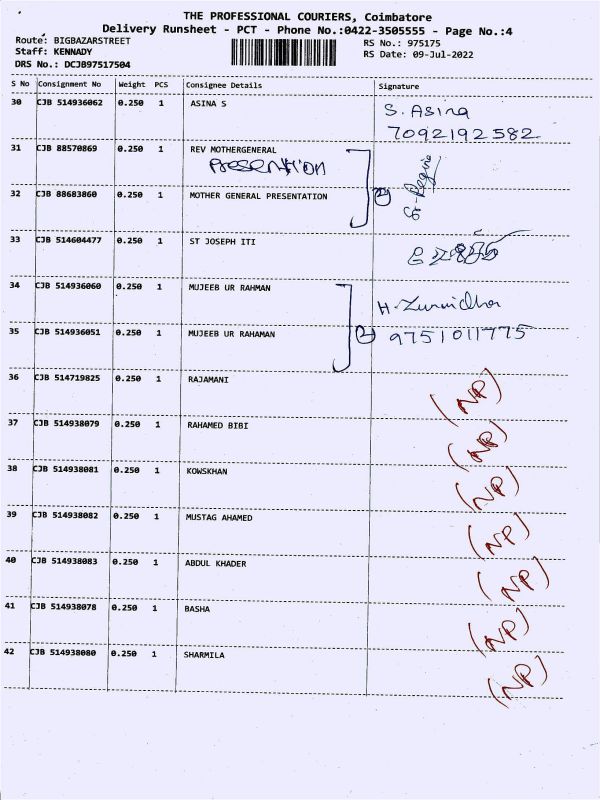 THE PROFESSIONAL COURIERS, Coimbatore
Delivery Runsheet - PCT - Phone No.:0422-3505555 - Page No.:4
Route: BIGBAZARSTREET
RS No.: 975175
Staff: KENNADY
RS Date: 09-Jul-2022
DRS No.: DCJB97517504
S No Consignment No Weight PCS Consignee Details Signature
30 CJB 514936062 0.250 1 ASINA S S. Asina
7092192582
31 CJB 88570869 0.250 1 REV MOTHERGENERAL
Presention
32 CJB 88683860 0.250 1 MOTHER GENERAL PRESENTATION 2 Sr-Regine
33 CJB 514604477 0.250 1 ST JOSEPH ITI
34 CJB 514936060 0.250 1 MUJEEB UR RAHMAN H.
35 CJB 514936051 0.250 1 MUJEEB UR RAHAMAN 2 9751011775
36 CJB 514719825 0.250 1 RAJAMANI (NP)
37 CJB 514938079 0.250 1 RAHAMED BIBI (NP)
38 CJB 514938081 0.250 1 KOWSKHAN (NP)
39 CJB 514938082 0.250 1 MUSTAG AHAMED (NP)
40 CJB 514938083 0.250 1 ABDUL KHADER (NP)
41 CJB 514938078 0.250 1 BASHA (NP)
42 CJB 514938080 0.250 1 SHARMILA (NP)